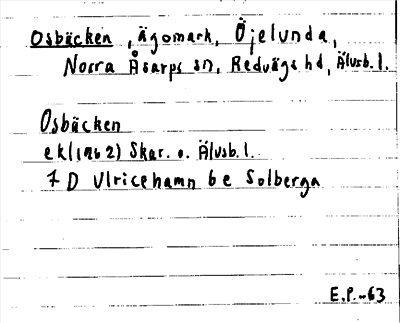 Osbäcken, ägomark, Öjelunda,
Norra Åsarps sn, Redvägs hd, Älvsb. l.
Osbäcken
ek (1962) Skar. o. Älvsb. l.
7 D Ulricehamn be Solberga
E.P. -63